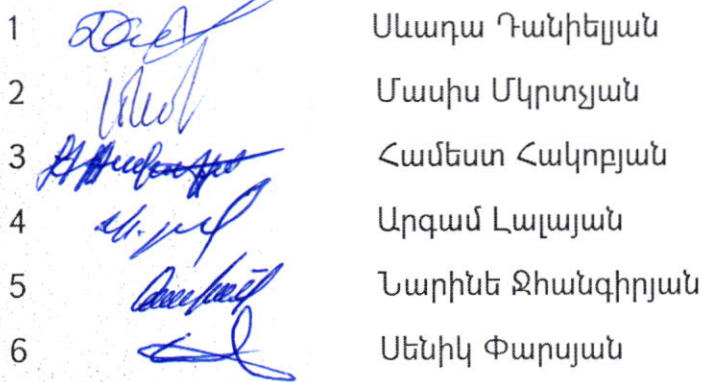 1 Սևադա Դանիելյան
2 Մասիս Մկրտչյան
3 Համեստ Հակոբյան
4 Արգամ Լալայան
5 Նարինե Ջհանգիրյան
6 Սենիկ Փարսյան